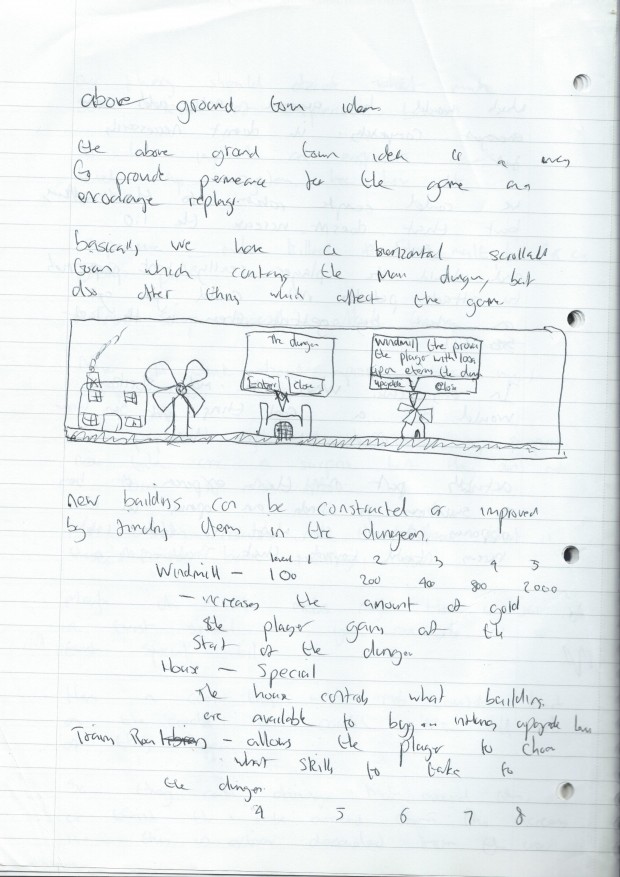 above ground town ideas
the above ground town idea is a way
to provide permeance for the game an
encourage replay
basically we have a horizontal scrollable
town which contains the main dungeon, but
also other things which affect the game
The dungeon
Enter close
windmill the provides
the player with 100x
upon entering the dung
upgrade Close
new buildings can be constructed or improved
by finding items in the dungeon.
level 1 2 3 4 5
Windmill – 100 200 400 800 2000
– increases the amount of gold
the player gains at the
start of the dungeon
House – Special
The house controls what buildings
are available to buy upgrade
Room – allows the player to choose
what skills to take to
the dungeon
4 5 6 7 8